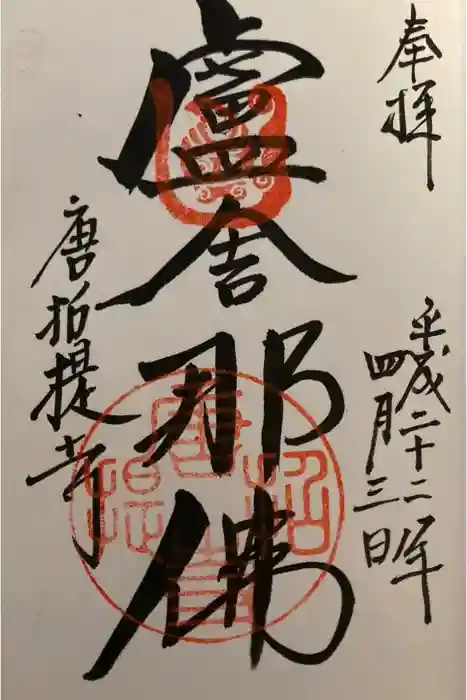 奉拝
平成二十二年
四月三日
盧舎那佛
唐招提寺
唐招提寺